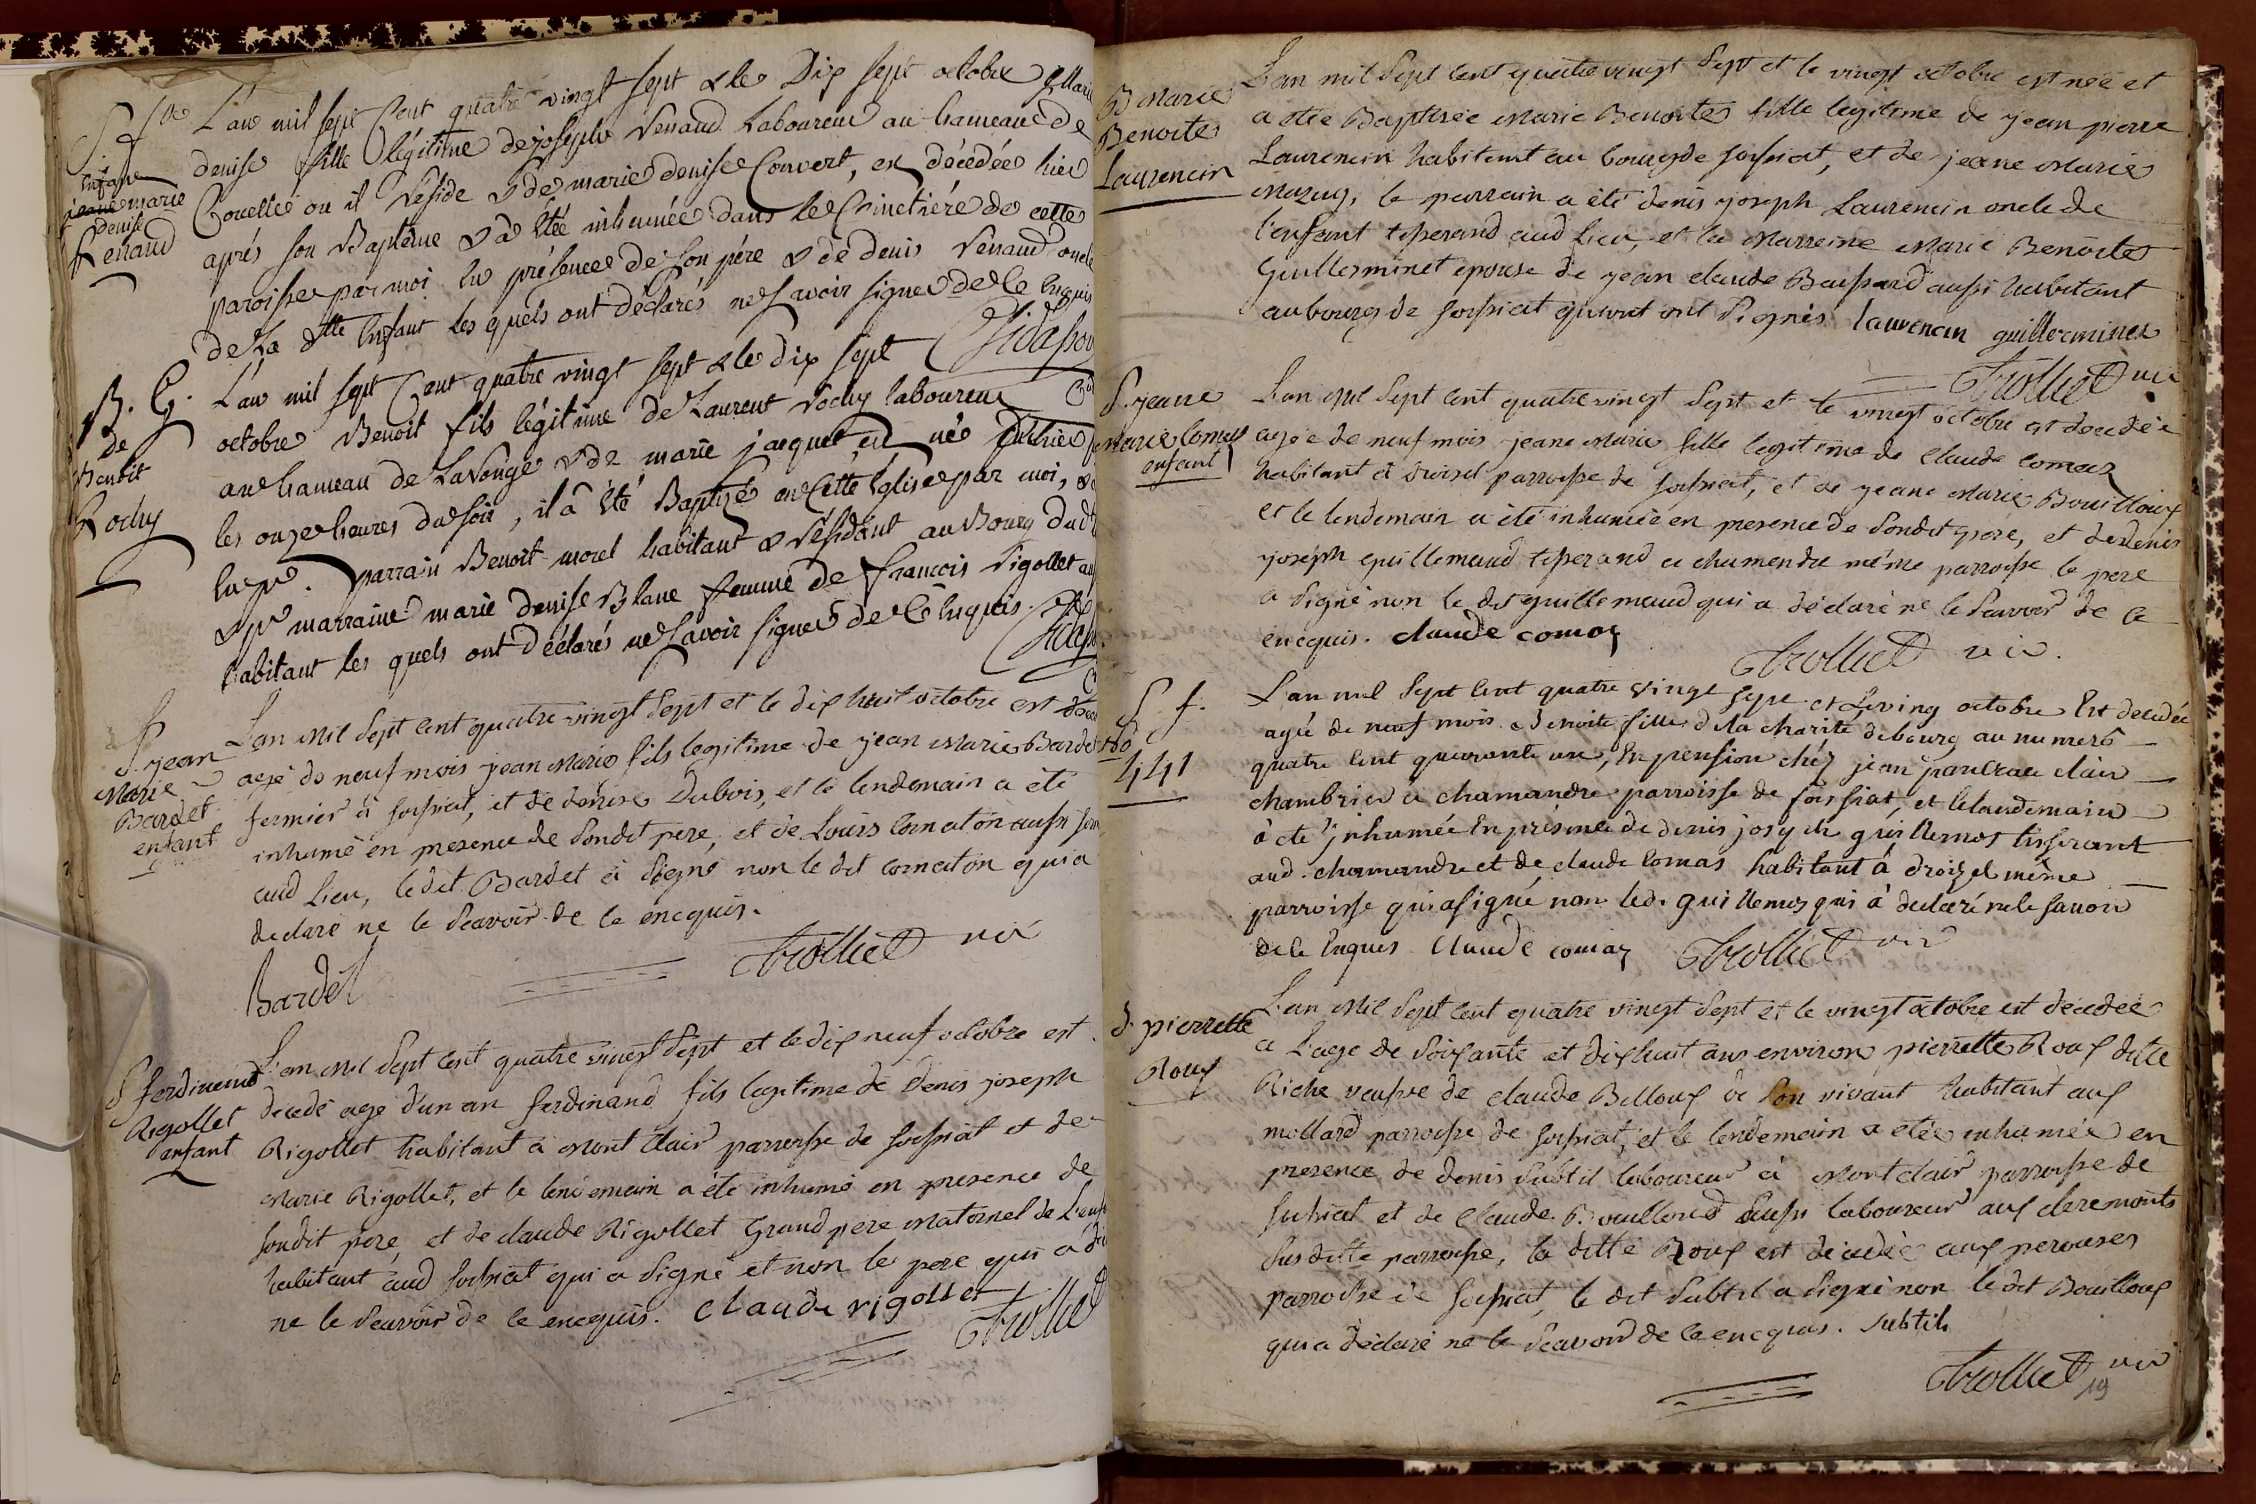 S. f.
Enfant
jeane marie
denise
Renaud
L'an mil sept Cent quatre vingt sept & le Dix sept octobre Marie
denise fille légitime de joseph Renaud Laboureur au hameau de
Couelle ou il Réside & de marie denise Convert, est décédée hier
aprés son Baptême & a été inhumée dans le Cimetière de cette
paroisse par moi en présence de son père & de denis Renaud oncle
de La dtte Enfant les quels ont déclarés ne savoir signer de ce Enquis
B. G.
De
Benoit
Rochy
L'an mil sept Cent quatre vingt sept & le dix sept
octobre Benoit fils légitime de Laurent Rochy laboureur
au hameau de Lavonge & de marie jacquet, est né
les onze heures du soir, il a été Baptizé en Cette Eglise par moi, &
parrain Benoit morel habitant & résidant au Bourg dud
marraine marie denise Blanc femme de francois Rigollet
habitant les quels ont déclarés ne savoir signer de ce Enquis.
S. jean
Marie
Bardet
enfant
L'an mil sept cent quatre vingt sept et le dix huit octobre est
agé de neuf mois jean Marie fils legitime de jean Marie Bardet
fermier à forssiat, et de denise Dubois, et le lendemain a été
inhumé en presence de Son dit pere, et de Louis Cornaton aussi
aud Lieu, le dit Bardet a Signé non le dit cornaton qui a
declaré ne le Scavoir de ce encquis.
Bardet
Trolliet vic
S ferdinand
Rigollet
enfant
L'an mil Sept cent quatre vingt Sept et le dix neuf octobre est
decedé agé d'un an ferdinand fils legitime de Denis joseph
Rigollet habitant à Mont Clair parroisse de forssiat et de
Marie Rigollet, et le lendemain a été inhumé en presence de
sondit pere, et de claude Rigollet Grand pere maternel de
habitant aud forssiat qui a Signé et non le pere qui a
ne le Scavoir de ce encquis. claude rigollet
Trolliet
B Marie
Benoite
Laurencin
L'an mil Sept cent quatre vingt Sept et le vingt octobre est née et
a été Baptisée Marie Benoite fille legitime de jean pierre
Laurencin habitant au bourg de forssiat, et de jeane Marie
Mazuy, le parrain a été denis joseph Laurencin oncle de
l'enfant tisserand aud Lieu, et la Marreine Marie Benoite
Guillerminet epouse de jean claude Baissard aussi habitant
au bourg de forssiat qui ont Signés laurencin guillerminet
Trolliet vic
S. jeane
Marie Comas
enfant
L'an mil Sept cent quatre vingt Sept et le vingt octobre est decedée
agée de neuf mois jeane Marie fille legitime de Claude Comas
habitant à Droisel parroisse de forssiat, et de jeane Marie Bouilloux
et le lendemain a été inhumée en presence de Sondit pere, et de denis
joseph guillemaud tisserand a chamendre même parroisse le pere
a Signé non le dit guillemaud qui a déclaré ne le Scavoir de ce
encquis. claude comas
Trolliet vic.
S. f.
441
L'an mil Sept Cent quatre vingt Sept et Le ving octobre Est decedée
agé de neuf mois Benoite fille d La charité de bourg au numero
quatre Cent quarente une, En pension chéz jean pancrace clair
chambrier a chamandre parroisse de forssiat, et lelandemain
à été Inhumée En présence de denis joseph guillemos tisserant
aud. chamandre et de claude Comas habitant à droizel même
parroisse qui a signé non led. guillemos qui à declaré ne le savoir
de le Enques Claude comas Trolliet vic
S. pierrette
Roux
L'an Mil Sept Cent quatre vingt Sept et le vingt octobre est decedée
a L'age de Soixante et dix huit ans environ pierrette Roux dite
Riche veufve de claude Billoux de Son vivant habitant aux
mollard parroisse de forssiat, et le lendemain a etée inhumée en
presence de denis Subtil laboureur à Montclair parroisse de
forssiat et de Claude Bouilloux aussi laboureur aux cleremonts
Sus ditte parroisse, la ditte Roux est decedée aux perouses
parroisse de forssiat, le dit Subtil a Signé non le dit Bouilloux
qui a déclaré ne le Scavoir de ce encquis. Subtil
Trolliet vic
19